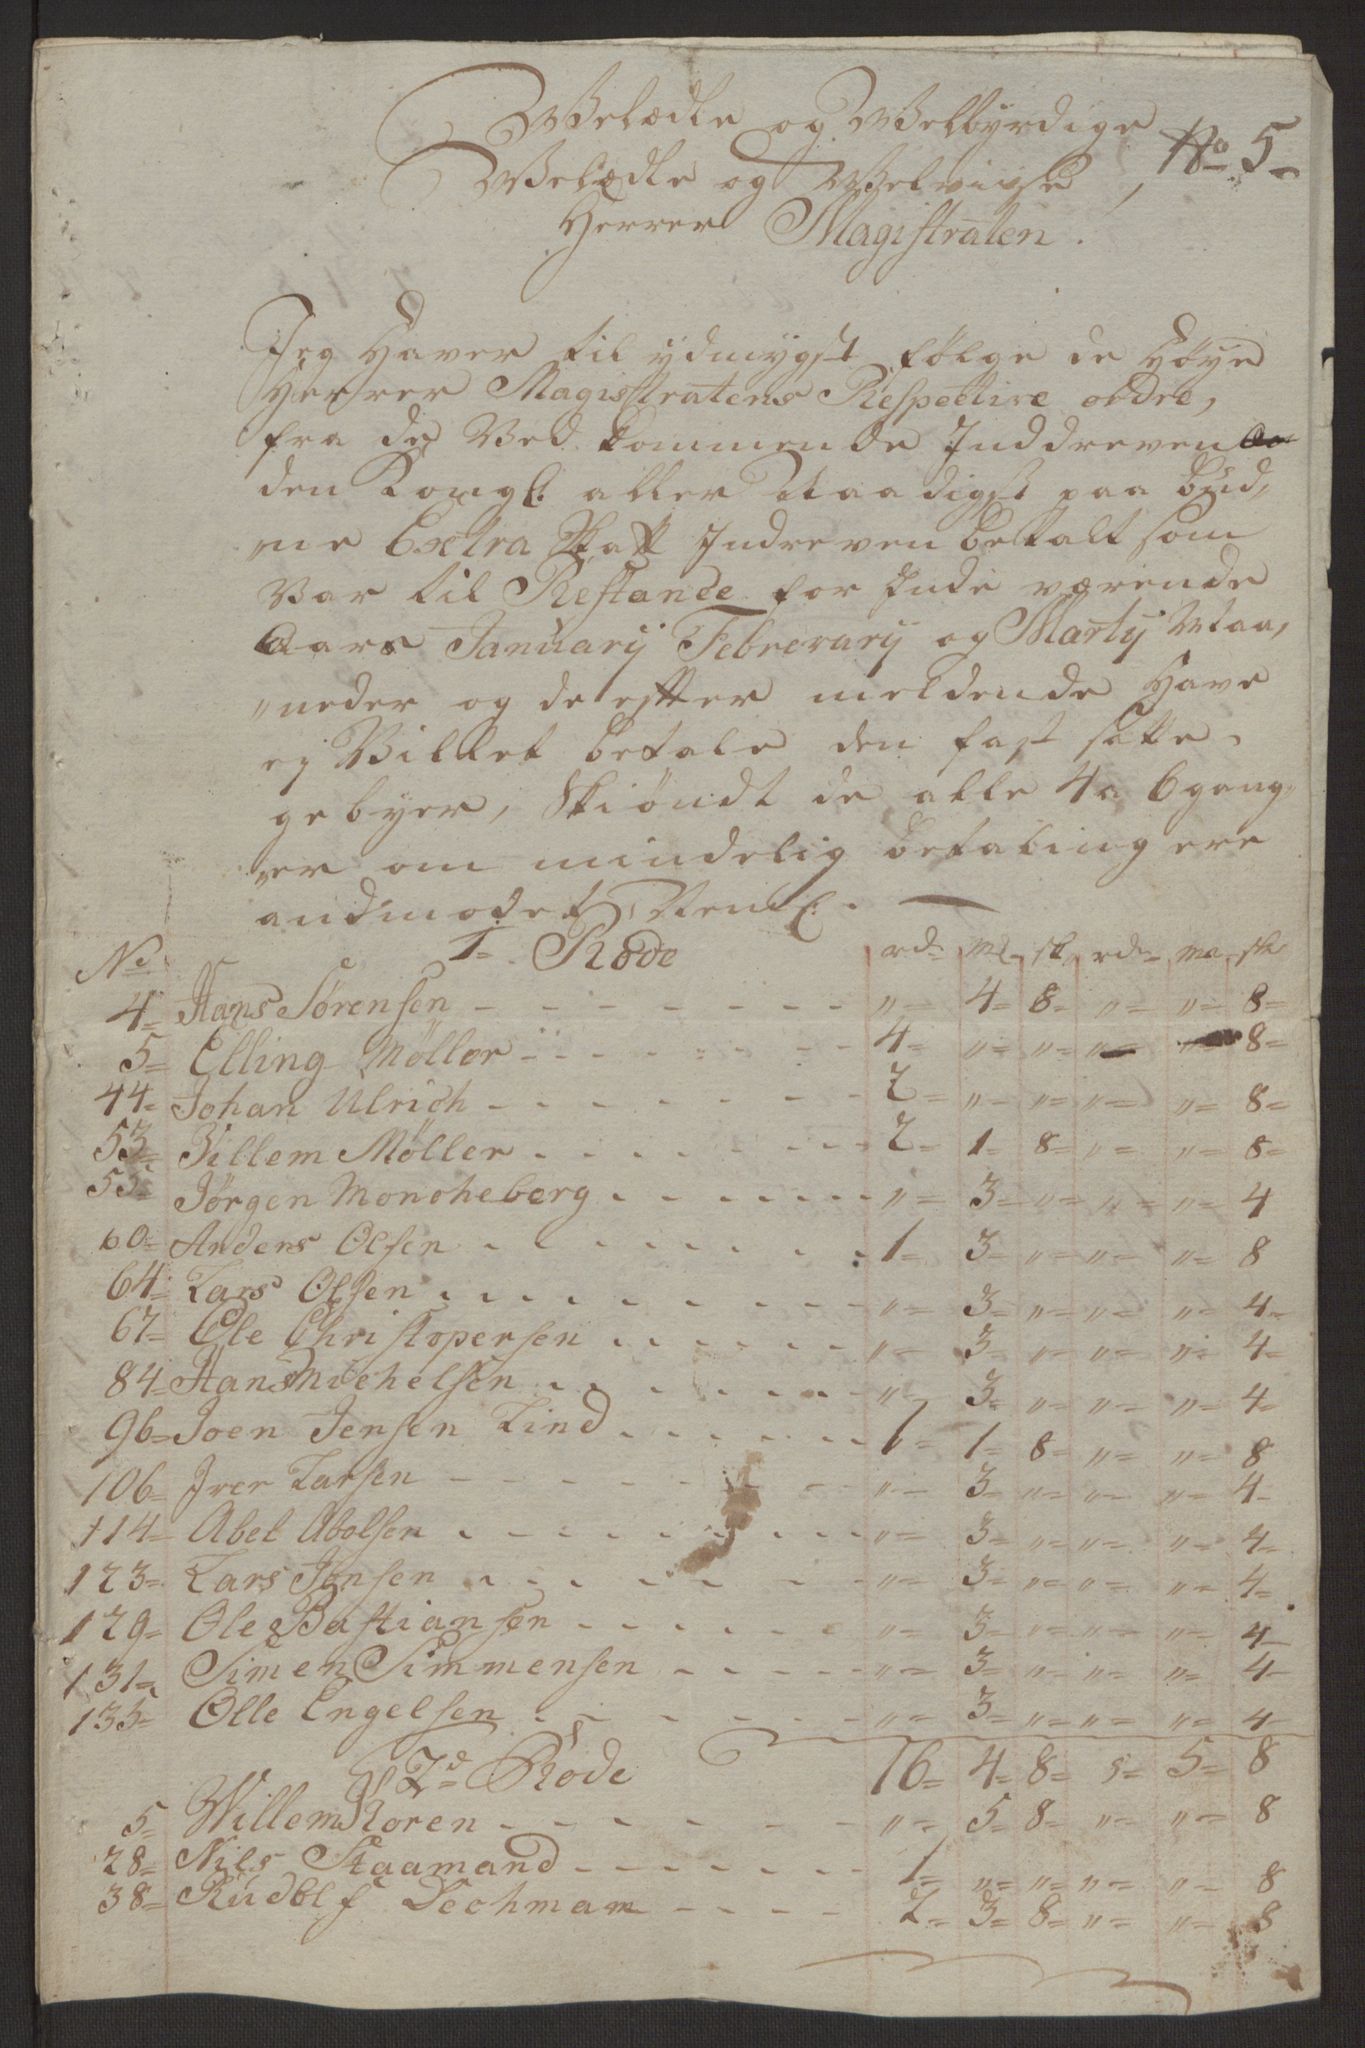 Welædle og Welbyrdige
No 5
Welædle og Welviise
Herrer Magistraten.
Jeg Haver til ydmygst følge de Høye
Herrer Magistratens Respective ordre,
fra de Ved kommende Inddreven
den Kongl: aller Naadigst paa bud,
ne Extra Skatt Indreven betalt som
Var til Restance for inde værende
Aars Januarij Febrerarij og Martij Maa,
neder og de efter meldende Have
ej Villet betale den fast satte
gebyer, Skiøndt de alle 4 a 6 gang
er om mindelig betaling ere
andmodet, Neml:
No 1= Rode rd= ml= sk rd= ma sk
4= Hans Sørensen - - - - - - - "= 4= 8= "= "= 8=
5= Elling Møller - - - - - - - 4= "= "= "= "= 8=
44= Johan Ulrich - - - - - - - 2= "= "= "= "= 8=
53= Villem Møller - - - - - - - 2= 1= 8= "= "= 8=
55= Jørgen Moncheberg - - - - - - "= 3= "= "= "= 4
60= Anders Olsen - - - - - - - 1= 3= "= "= "= 8
64= Lars Olsen - - - - - - - "= 3= "= "= "= 4=
67= Ole Christopersen - - - - - - "= 3= "= "= "= 4=
84= Hans Michelsen - - - - - - "= 3= "= "= "= 4=
96= Joen Jensen Lind - - - - - - 1= 1= 8= "= "= 8
106= Iver Larsen - - - - - - - "= 3= "= "= "= 4=
114= Abel Abelsen - - - - - - - "= 3= "= "= "= 4=
123= Lars Jensen - - - - - - - "= 3= "= "= "= 4=
129= Ole Bastiansen - - - - - - "= 3= "= "= "= 4
131= Simen Simmensen - - - - - "= 3= "= "= "= 4
135= Olle Engelsen - - - - - - "= 3= "= "= "= 4
2d= Rode 16= 4= 8= "= 5= 8
5= Willem Koren - - - - - - "= 5= 8= "= "= 8
28= Nils Staamand - - - - - - 1= "= "= "= "= 8
38= Rudolf Dechman - - - - 2= 3= 8= "= "= 8